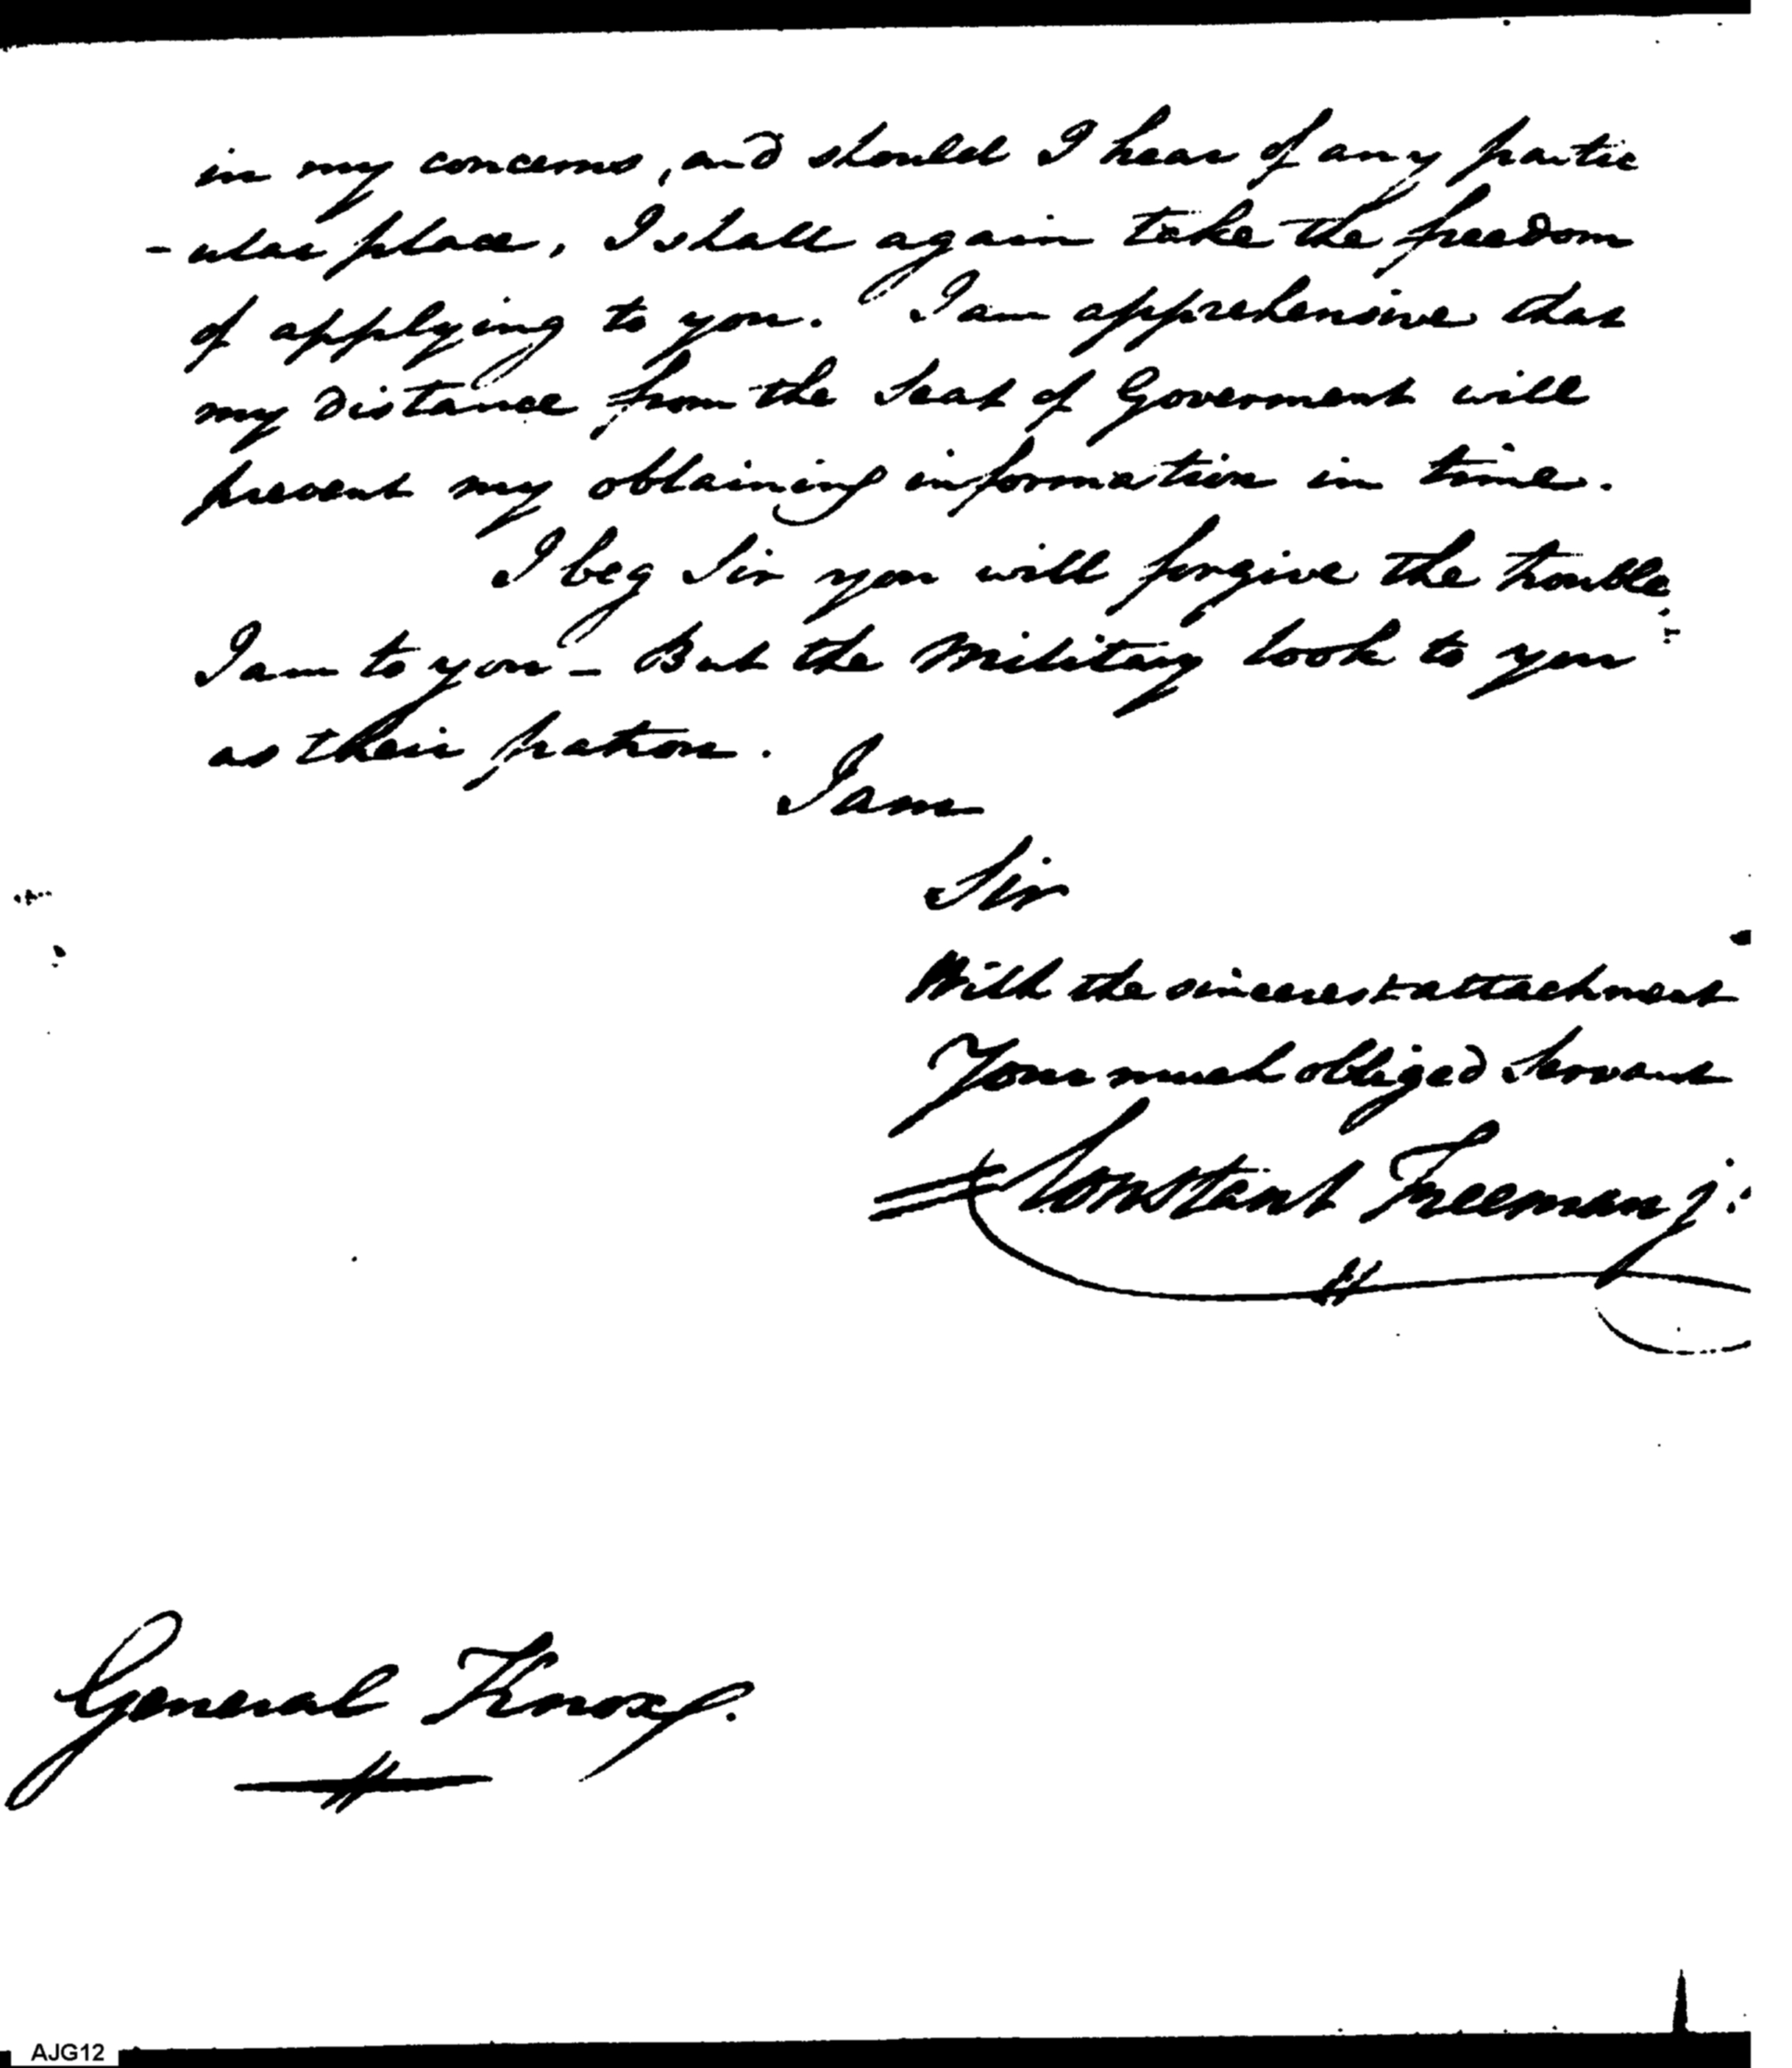 in my concerns, and should I hear of any partic
-ular place, I shall again take the freedom
of applying to you. I am apprehensive that
my distance from the Seat of Goverment will
prevent my obtaining information in time.
I beg Sir you will forgive the trouble
I am to you - But the Military look to you
as their patron.
I am
Sir
With the sincerest attachment
Your much obliged Servant
Constant Freeman j:
General Knox.
AJG12